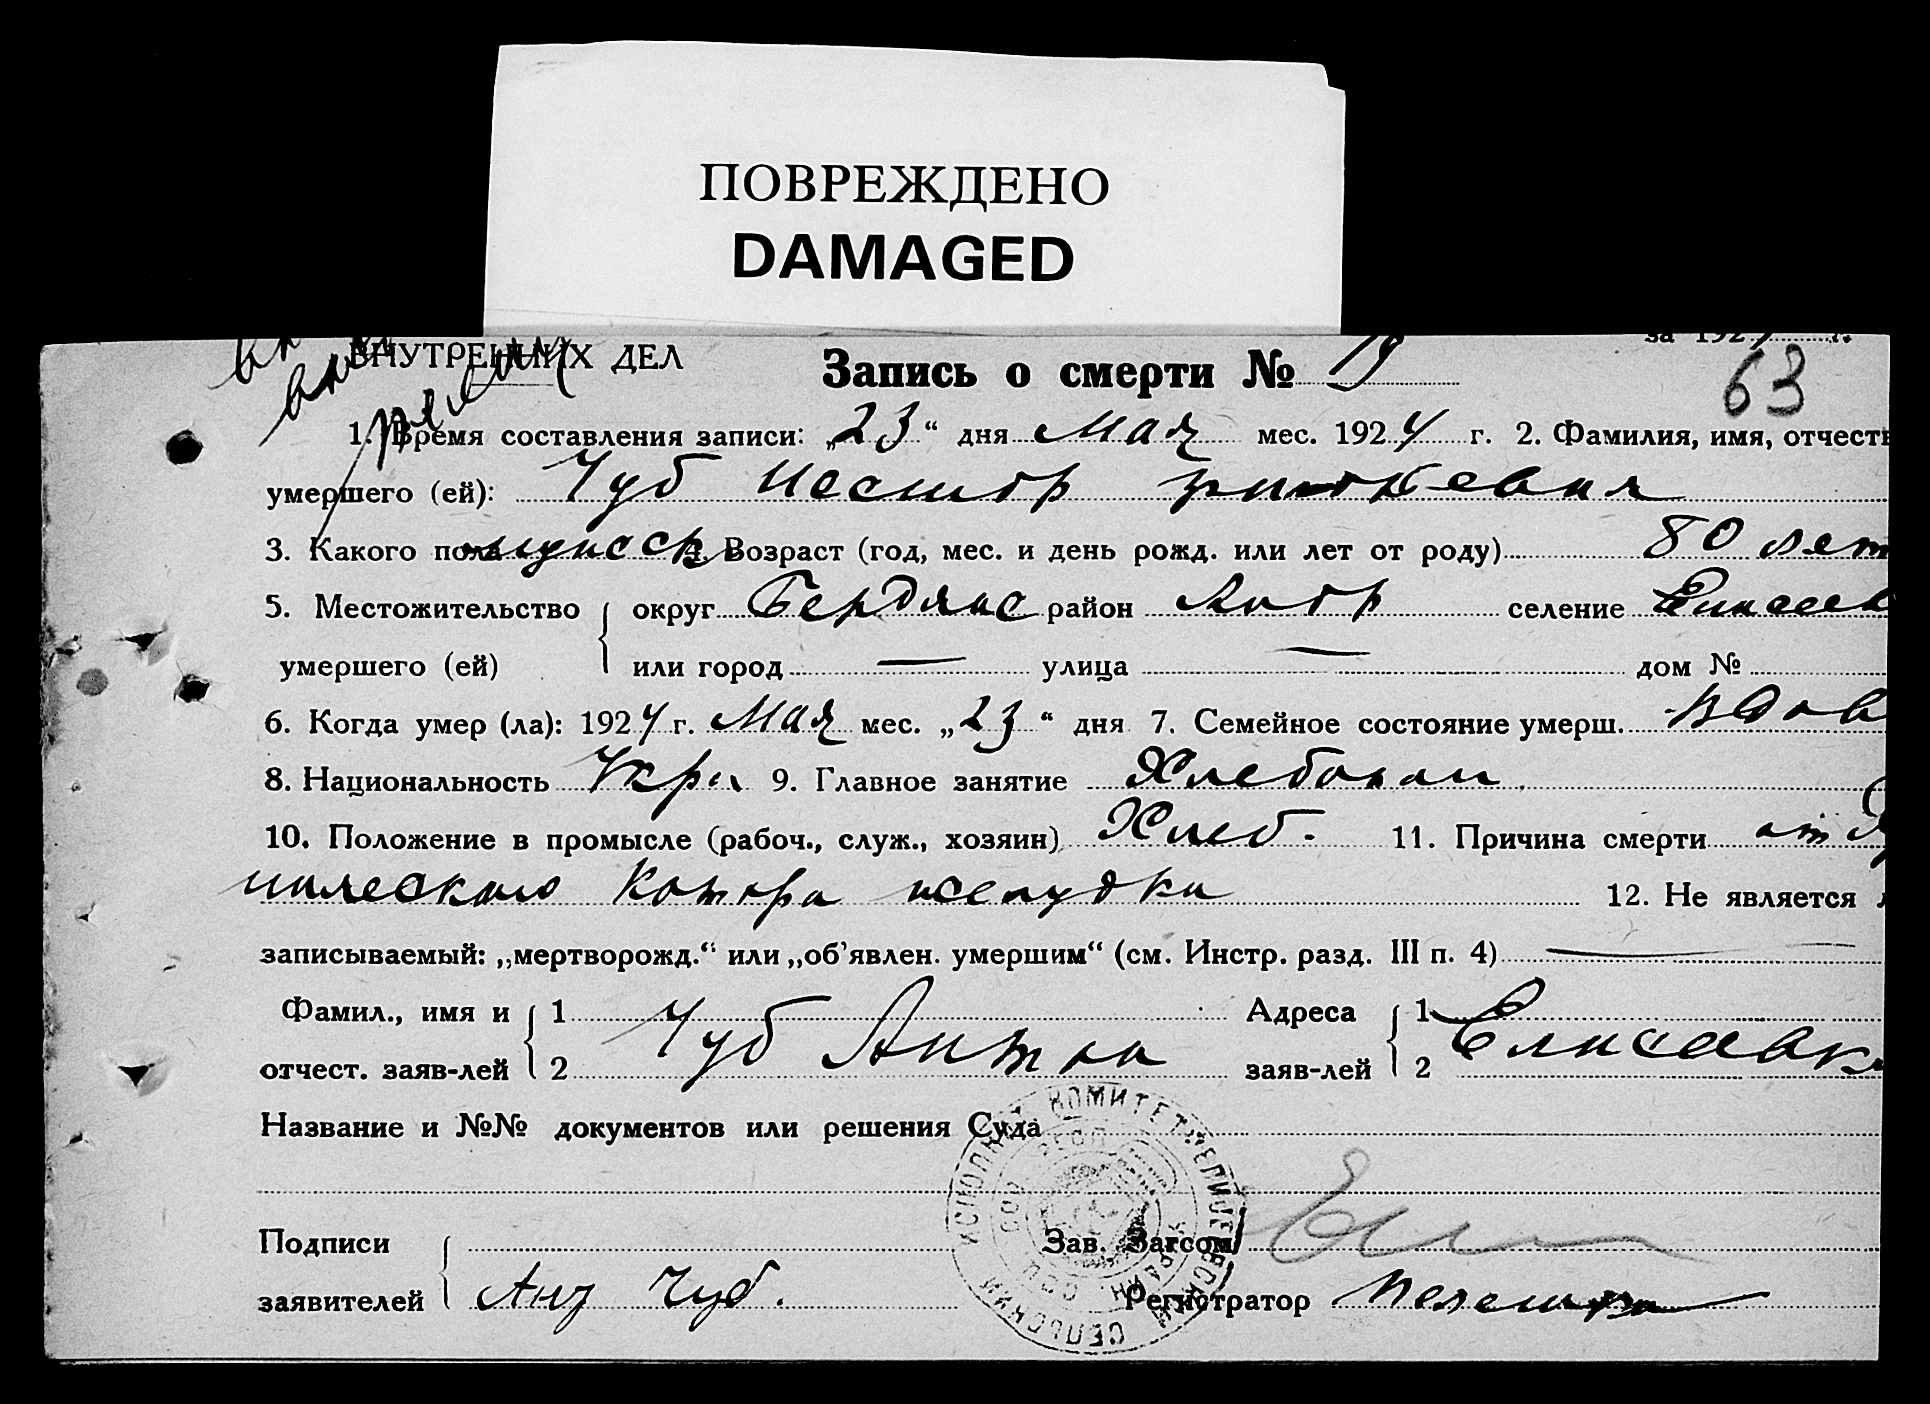 ПОВРЕЖДЕНО
DAMAGED
ВНУТРЕННИХ ДЕЛ
Запись о смерти № 19
за 1924 г.
63
1. Время составления записи: „23“ дня Мая мес. 1924 г. 2. Фамилия, имя, отчеств
умершего (ей): Чуб Нестор
3. Какого пола мужск 4. Возраст (год, мес. и день рожд. или лет от роду) 80 лет
5. Местожительство округ Бердянс район селение Елисеев
умершего (ей) или город — улица — дом №
6. Когда умер (ла): 1924 г. Мая мес. „23“ дня 7. Семейное состояние умерш. вдов
8. Национальность Укра 9. Главное занятие Хлебопаш
10. Положение в промысле (рабоч., служ., хозяин) Хлеб. 11. Причина смерти от Х
нического катара желудка 12. Не является л
записываемый: „мертворожд.“ или „об'явлен. умершим“ (см. Инстр. разд. III п. 4) —
Фамил., имя и 1 Адреса 1
отчест. заяв-лей 2 Чуб Антон заяв-лей 2 Елисавк
Название и №№ документов или решения Суда
Подписи Зав. Загсом
заявителей Ант Чуб. Регистратор
ИСПОЛНИТ КОМИТЕТ ЕЛИСЕЕВСКИЙ СЕЛЬСКИЙ